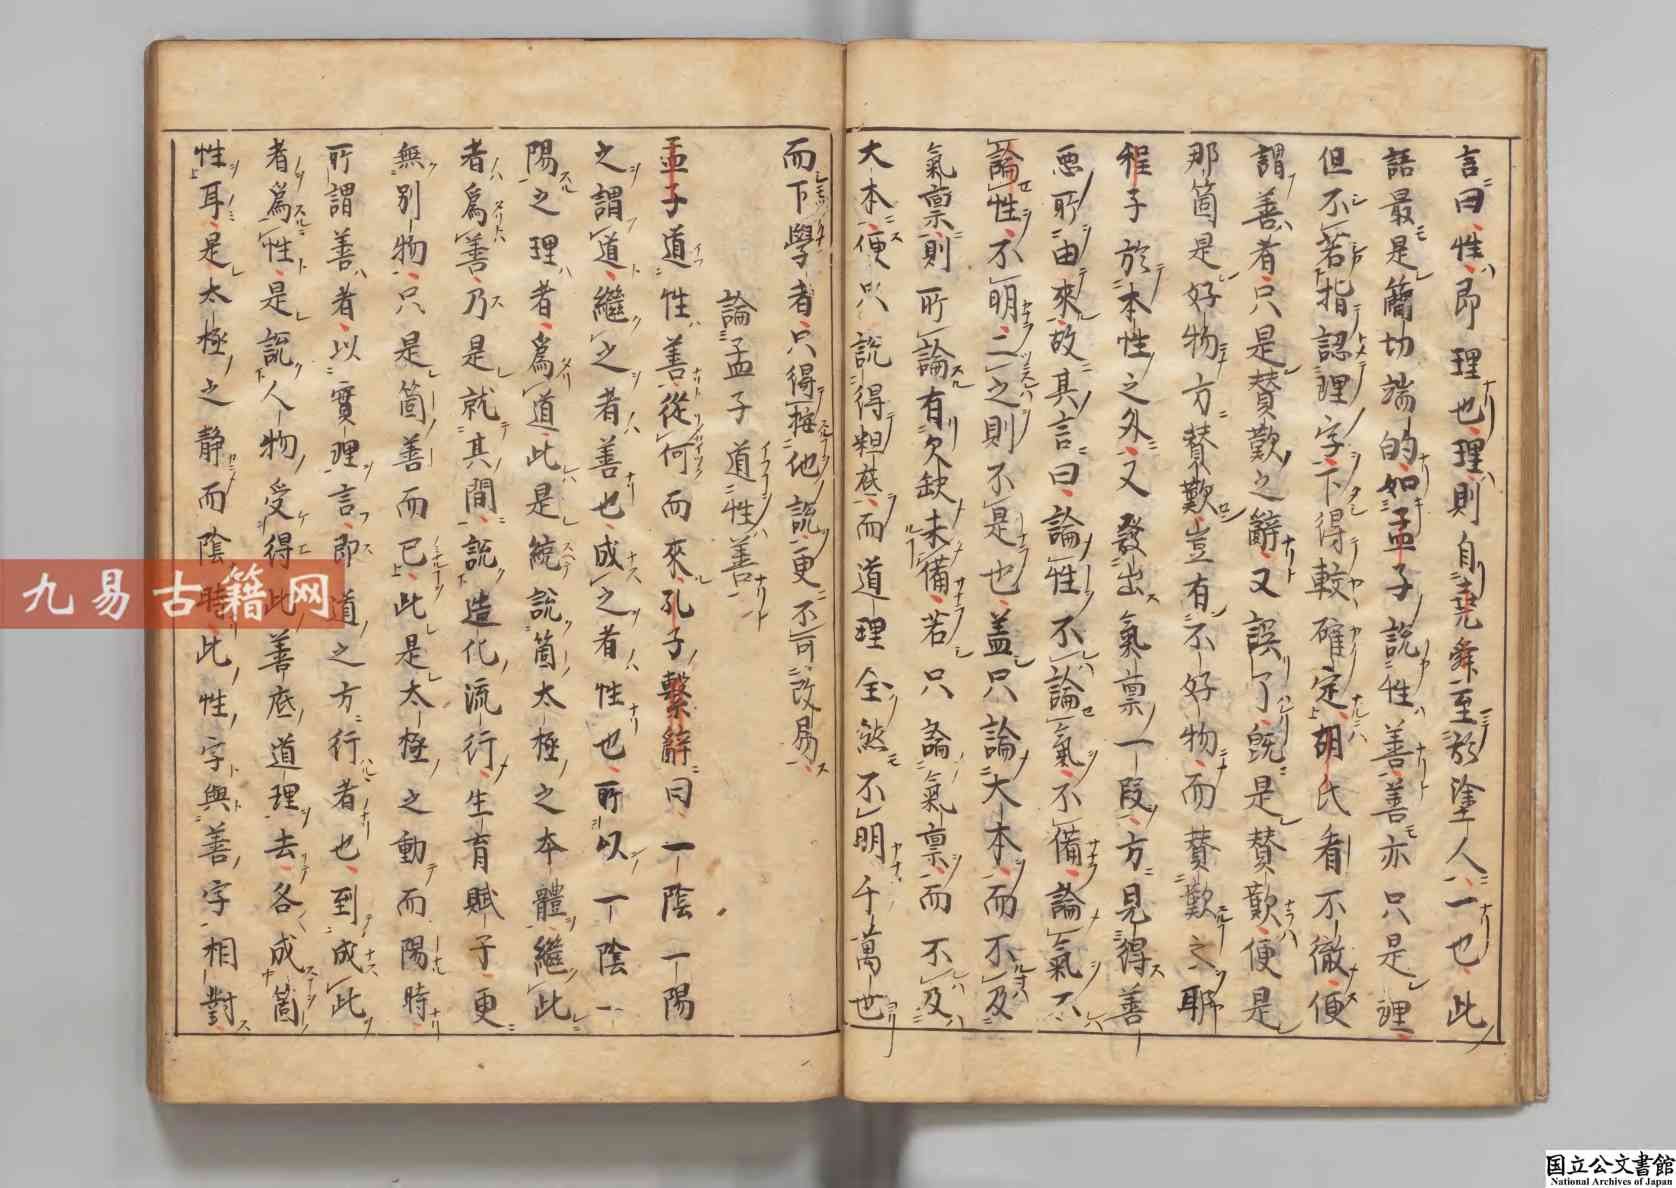 言曰性即理也理則自堯舜至於塗人一也此
語最是簡切端的如孟子說性善善亦只是理
但不若指認理字下得較確定胡氏看不徹便
謂善者只是賛歎之辭又誤了既是賛歎便是
那箇是好物方賛歎豈有不好物而賛歎之耶
程子於本性之外又發出氣禀一段方見得善
惡所由來故其言曰論性不論氣不備論氣不
論性不明二之則不是也盖只論大本而不及
氣禀則所論有欠缺未備若只論氣禀而不及
大本便只說得粗底而道理全然不明千萬世
而下學者只得按他說更不可改易
論孟子道性善
孟子道性善從何而來孔子繫辭曰一陰一陽
之謂道繼之者善也成之者性也所以一陰一
陽之理者爲道此是統說箇太極之本體繼此
者爲善乃是就其間說造化流行生育賦予更
無別物只是箇善而已此是太極之動而陽時
所謂善者以實理言即道之方行者也到成此
者爲性是說人物受得此善底道理去各成箇
性耳是太極之靜而陰時此性字與善字相對
九易古籍网
国立公文書館
National Archives of Japan